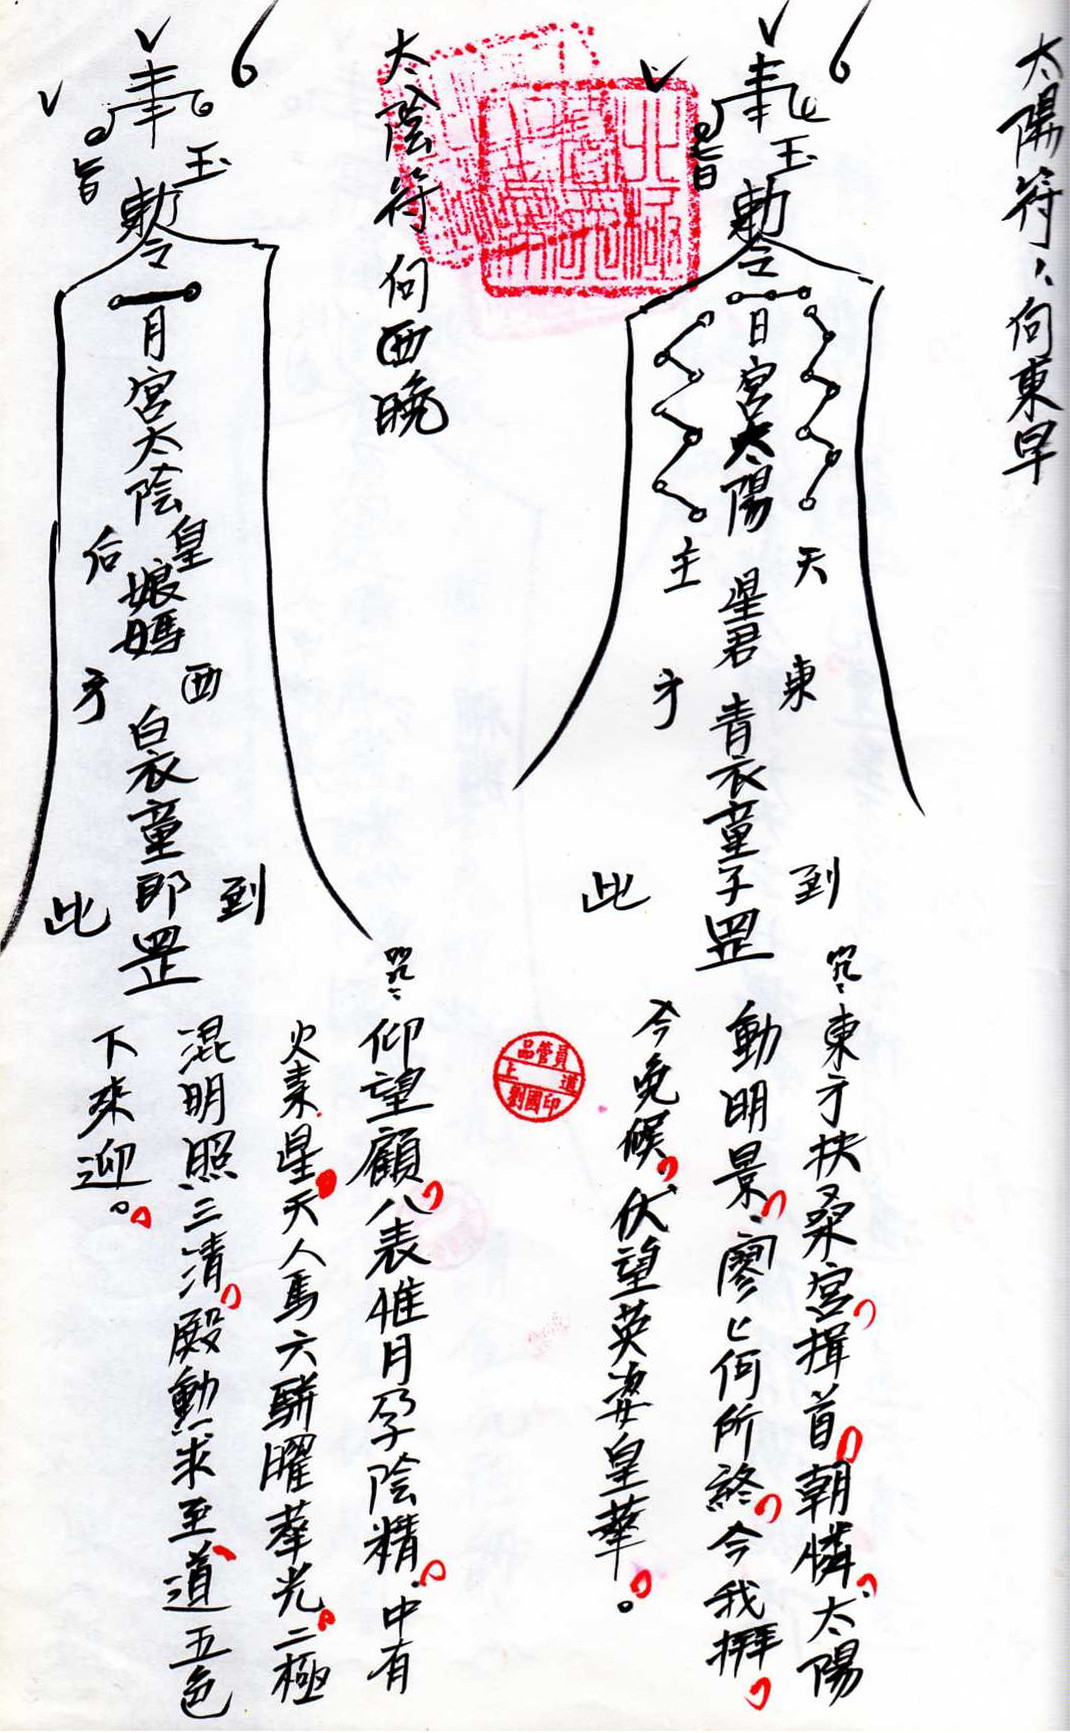 太陽符：向東早
奉
玉
旨
勅令
日宮太陽
星君
青衣童子罡
天
主
東
方
到
此
咒：東方扶桑宮揖首朝憐太陽
動明景廖匕何所終今我拜
今晚候伏望英姿皇華。
太陰符 向西晚
奉
玉
旨
勅令
月宮太陰
娘媽
白衣童郎罡
皇
后
西
方
到
此
咒：仰望顧八表惟月孕陰精中有
火素星天人馬六騈曜華光二極
混明照三清殿勳求至道五色
下來迎。
北極
品管員
上 進
劉國印